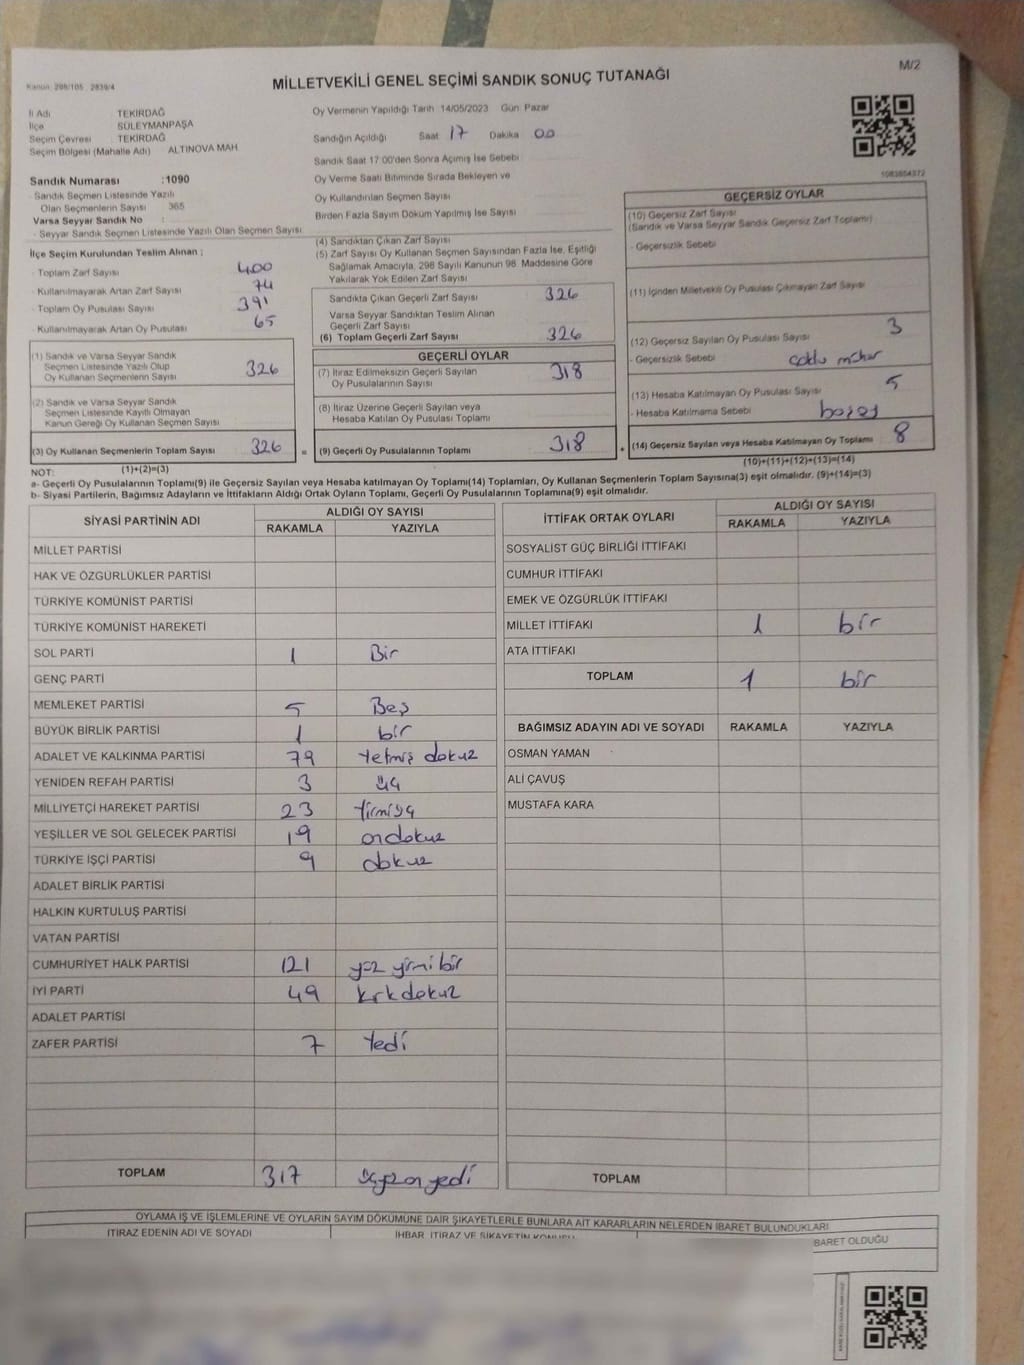 M/2
Kanun: 298/105 2839/4
MİLLETVEKİLİ GENEL SEÇİMİ SANDIK SONUÇ TUTANAĞI
İl Adı : TEKİRDAĞ
İlçe : SÜLEYMANPAŞA
Seçim Çevresi : TEKİRDAĞ
Seçim Bölgesi (Mahalle Adı) ALTINOVA MAH
Sandık Numarası :1090
Sandık Seçmen Listesinde Yazılı
Olan Seçmenlerin Sayısı 365
Varsa Seyyar Sandık No :
- Seyyar Sandık Seçmen Listesinde Yazılı Olan Seçmen Sayısı
Oy Vermenin Yapıldığı Tarih 14/05/2023 Gün Pazar
Sandığın Açıldığı Saat 17 Dakika 00
Sandık Saat 17:00'den Sonra Açılmış İse Sebebi
Oy Verme Saati Bitiminde Sırada Bekleyen ve
Oy Kullandırılan Seçmen Sayısı
Birden Fazla Sayım Döküm Yapılmış İse Sayısı
İlçe Seçim Kurulundan Teslim Alınan ;
- Toplam Zarf Sayısı 400
- Kullanılmayarak Artan Zarf Sayısı 74
- Toplam Oy Pusulası Sayısı 391
- Kullanılmayarak Artan Oy Pusulası 65
(1) Sandık ve Varsa Seyyar Sandık
Seçmen Listesinde Yazılı Olup
Oy Kullanan Seçmenlerin Sayısı 326
(2) Sandık ve Varsa Seyyar Sandık
Seçmen Listesinde Kayıtlı Olmayan
Kanun Gereği Oy Kullanan Seçmen Sayısı
(3) Oy Kullanan Seçmenlerin Toplam Sayısı 326 =
(4) Sandıktan Çıkan Zarf Sayısı
(5) Zarf Sayısı Oy Kullanan Seçmen Sayısından Fazla İse, Eşitliği
Sağlamak Amacıyla, 298 Sayılı Kanunun 98. Maddesine Göre
Yakılarak Yok Edilen Zarf Sayısı
Sandıkta Çıkan Geçerli Zarf Sayısı 326
Varsa Seyyar Sandıktan Teslim Alınan
Geçerli Zarf Sayısı
(6) Toplam Geçerli Zarf Sayısı 326
GEÇERLİ OYLAR
(7) İtiraz Edilmeksizin Geçerli Sayılan
Oy Pusulalarının Sayısı 318
(8) İtiraz Üzerine Geçerli Sayılan veya
Hesaba Katılan Oy Pusulası Toplamı
(9) Geçerli Oy Pusulalarının Toplamı 318 +
GEÇERSİZ OYLAR
(10) Geçersiz Zarf Sayısı
(Sandık ve Varsa Seyyar Sandık Geçersiz Zarf Toplamı)
- Geçersizlik Sebebi
(11) İçinden Milletvekili Oy Pusulası Çıkmayan Zarf Sayısı
(12) Geçersiz Sayılan Oy Pusulası Sayısı 3
- Geçersizlik Sebebi çoklu mühür
(13) Hesaba Katılmayan Oy Pusulası Sayısı 5
- Hesaba Katılmama Sebebi
(14) Geçersiz Sayılan veya Hesaba Katılmayan Oy Toplamı 8
NOT: (1)+(2)=(3)
(10)+(11)+(12)+(13)=(14)
a- Geçerli Oy Pusulalarının Toplamı(9) ile Geçersiz Sayılan veya Hesaba katılmayan Oy Toplamı(14) Toplamları, Oy Kullanan Seçmenlerin Toplam Sayısına(3) eşit olmalıdır. (9)+(14)=(3)
b- Siyasi Partilerin, Bağımsız Adayların ve İttifakların Aldığı Ortak Oyların Toplamı, Geçerli Oy Pusulalarının Toplamına(9) eşit olmalıdır.
SİYASİ PARTİNİN ADI ALDIĞI OY SAYISI
RAKAMLA YAZIYLA
MİLLET PARTİSİ
HAK VE ÖZGÜRLÜKLER PARTİSİ
TÜRKİYE KOMÜNİST PARTİSİ
TÜRKİYE KOMÜNİST HAREKETİ
SOL PARTİ 1 Bir
GENÇ PARTİ
MEMLEKET PARTİSİ 5 Beş
BÜYÜK BİRLİK PARTİSİ 1 bir
ADALET VE KALKINMA PARTİSİ 79 Yetmiş dokuz
YENİDEN REFAH PARTİSİ 3 üç
MİLLİYETÇİ HAREKET PARTİSİ 23 Yirmi üç
YEŞİLLER VE SOL GELECEK PARTİSİ 19 ondokuz
TÜRKİYE İŞÇİ PARTİSİ 9 dokuz
ADALET BİRLİK PARTİSİ
HALKIN KURTULUŞ PARTİSİ
VATAN PARTİSİ
CUMHURİYET HALK PARTİSİ 121 yüz yirmi bir
İYİ PARTİ 49 kırkdokuz
ADALET PARTİSİ
ZAFER PARTİSİ 7 Yedi
TOPLAM 317 üçyüzonyedi
İTTİFAK ORTAK OYLARI ALDIĞI OY SAYISI
RAKAMLA YAZIYLA
SOSYALİST GÜÇ BİRLİĞİ İTTİFAKI
CUMHUR İTTİFAKI
EMEK VE ÖZGÜRLÜK İTTİFAKI
MİLLET İTTİFAKI 1 bir
ATA İTTİFAKI
TOPLAM 1 bir
BAĞIMSIZ ADAYIN ADI VE SOYADI RAKAMLA YAZIYLA
OSMAN YAMAN
ALİ ÇAVUŞ
MUSTAFA KARA
TOPLAM
OYLAMA İŞ VE İŞLEMLERİNE VE OYLARIN SAYIM DÖKÜMÜNE DAİR ŞİKAYETLERLE BUNLARA AİT KARARLARIN NELERDEN İBARET BULUNDUKLARI
İTİRAZ EDENİN ADI VE SOYADI İHBAR, İTİRAZ VE ŞİKAYETİN KONUSU BARET OLDUĞU